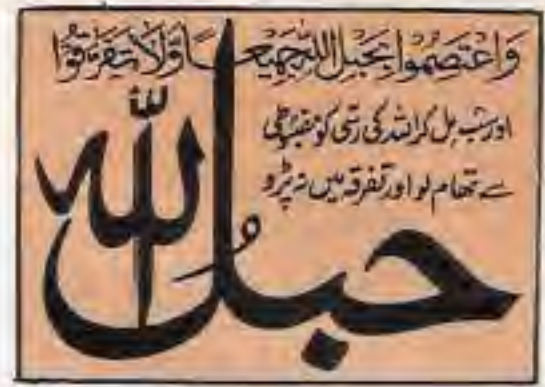 وَاعْتَصِمُوا بِحَبْلِ اللّٰهِ جَمِيْعًا وَّلَا تَفَرَّقُوْا
اور سب مل کر اللہ کی رسّی کو مضبوطی
سے تھام لو اور تفرقہ میں نہ پڑو
حبلُ اللّٰه